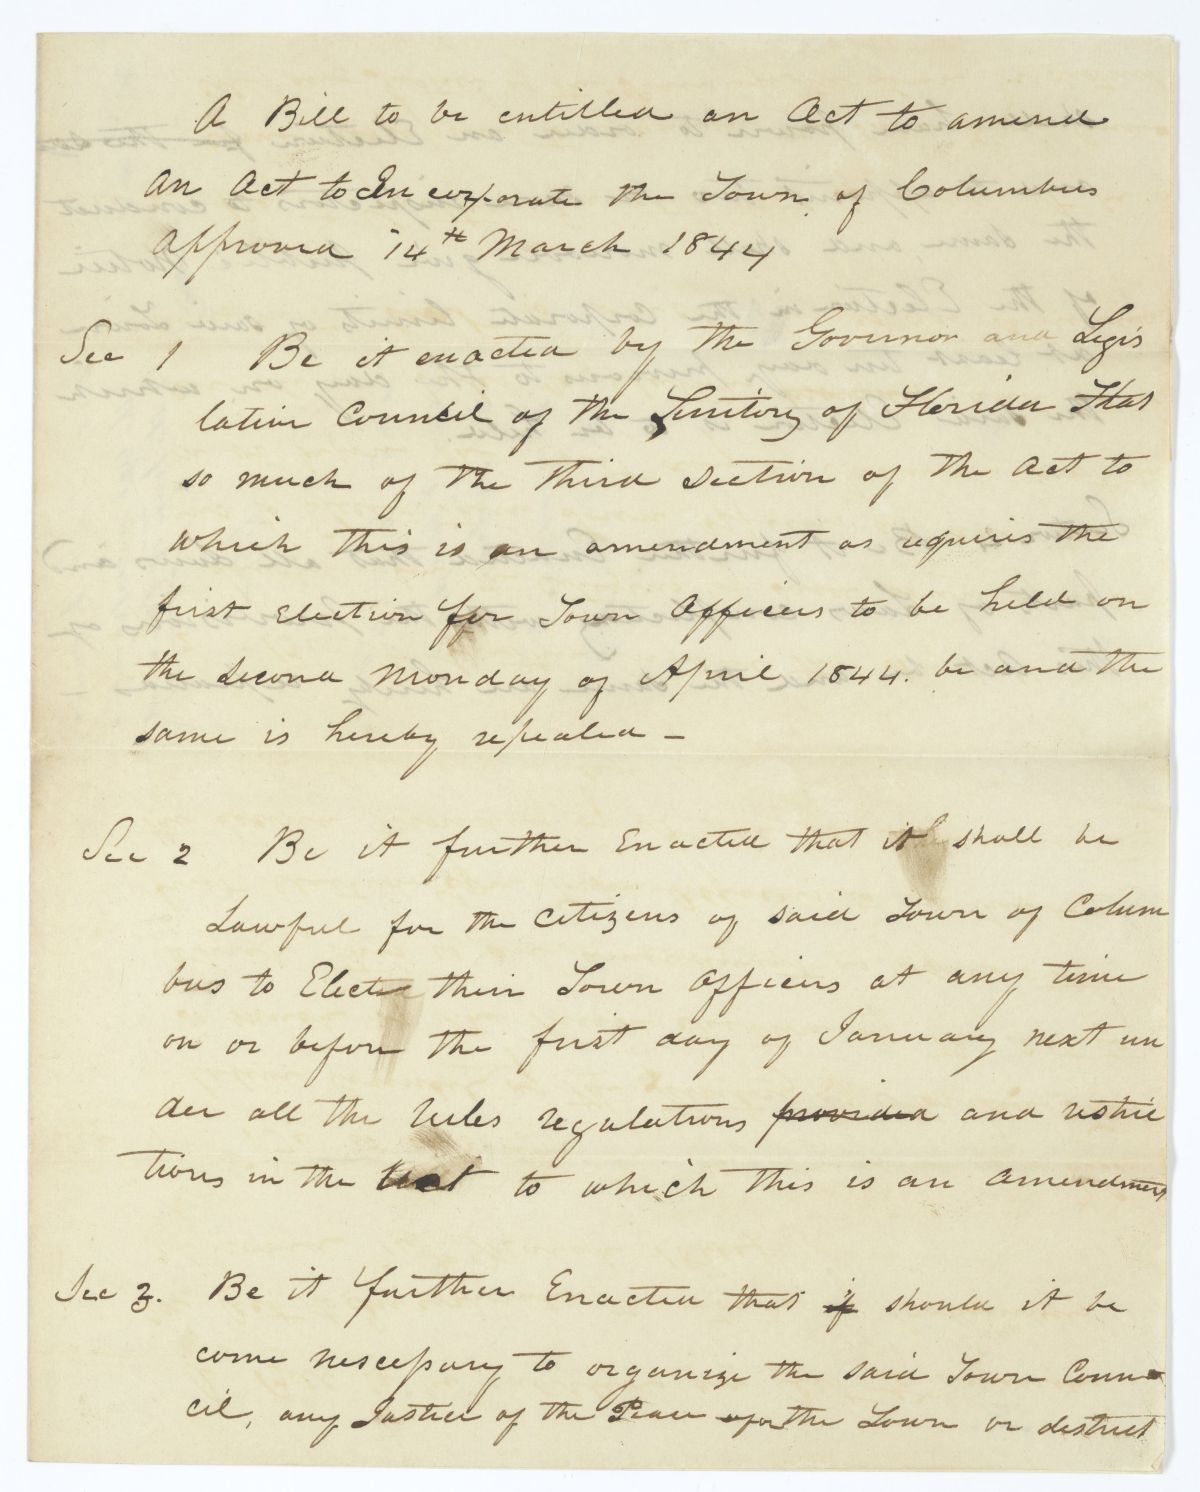 A Bill to be entitled an Act to amend
An Act to Incorporate the Town of Columbus
Approved 14th March 1844
Sec 1 Be it enacted by the Governor and Legis
lative Council of the Territory of Florida That
so much of the third section of the Act to
which this is an amendment as requires the
first Election for Town Officers to be held on
the second Monday of April 1844. be and the
same is hereby repealed -
Sec 2 Be it further Enacted that it shall be
Lawful for the Citizens of said Town of Colum
bus to Elect their Town Officers at any time
on or before the first day of January next un
der all the rules regulations provided and restric
tions in the act to which this is an amendment
Sec 3. Be it further Enacted that if should it be
come nescessary to organize the said Town Coun
cil, any Justice of the Peace of the Town or district